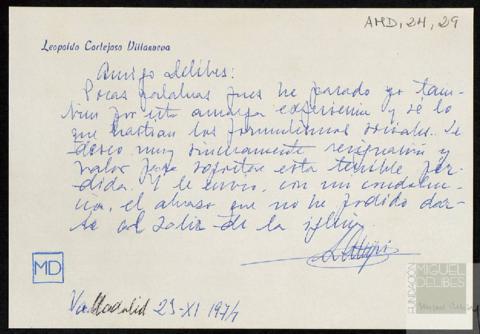 AMD, 24, 29
Leopoldo Cortejoso Villanueva
Amigo Delibes:
Pocas palabras pues he pasado yo tam-
bién por esta amarga experiencia y sé lo
que hastían los formulismos sociales. Le
deseo muy sinceramente resignación y
valor para soportar esta terrible pér-
dida. Y le envío, con mi condolen-
cia, el abrazo que no he podido dar-
le al salir de la iglesia
MD
Valladolid 23-XI 1974
FUNDACIÓN
MIGUEL
DELIBES